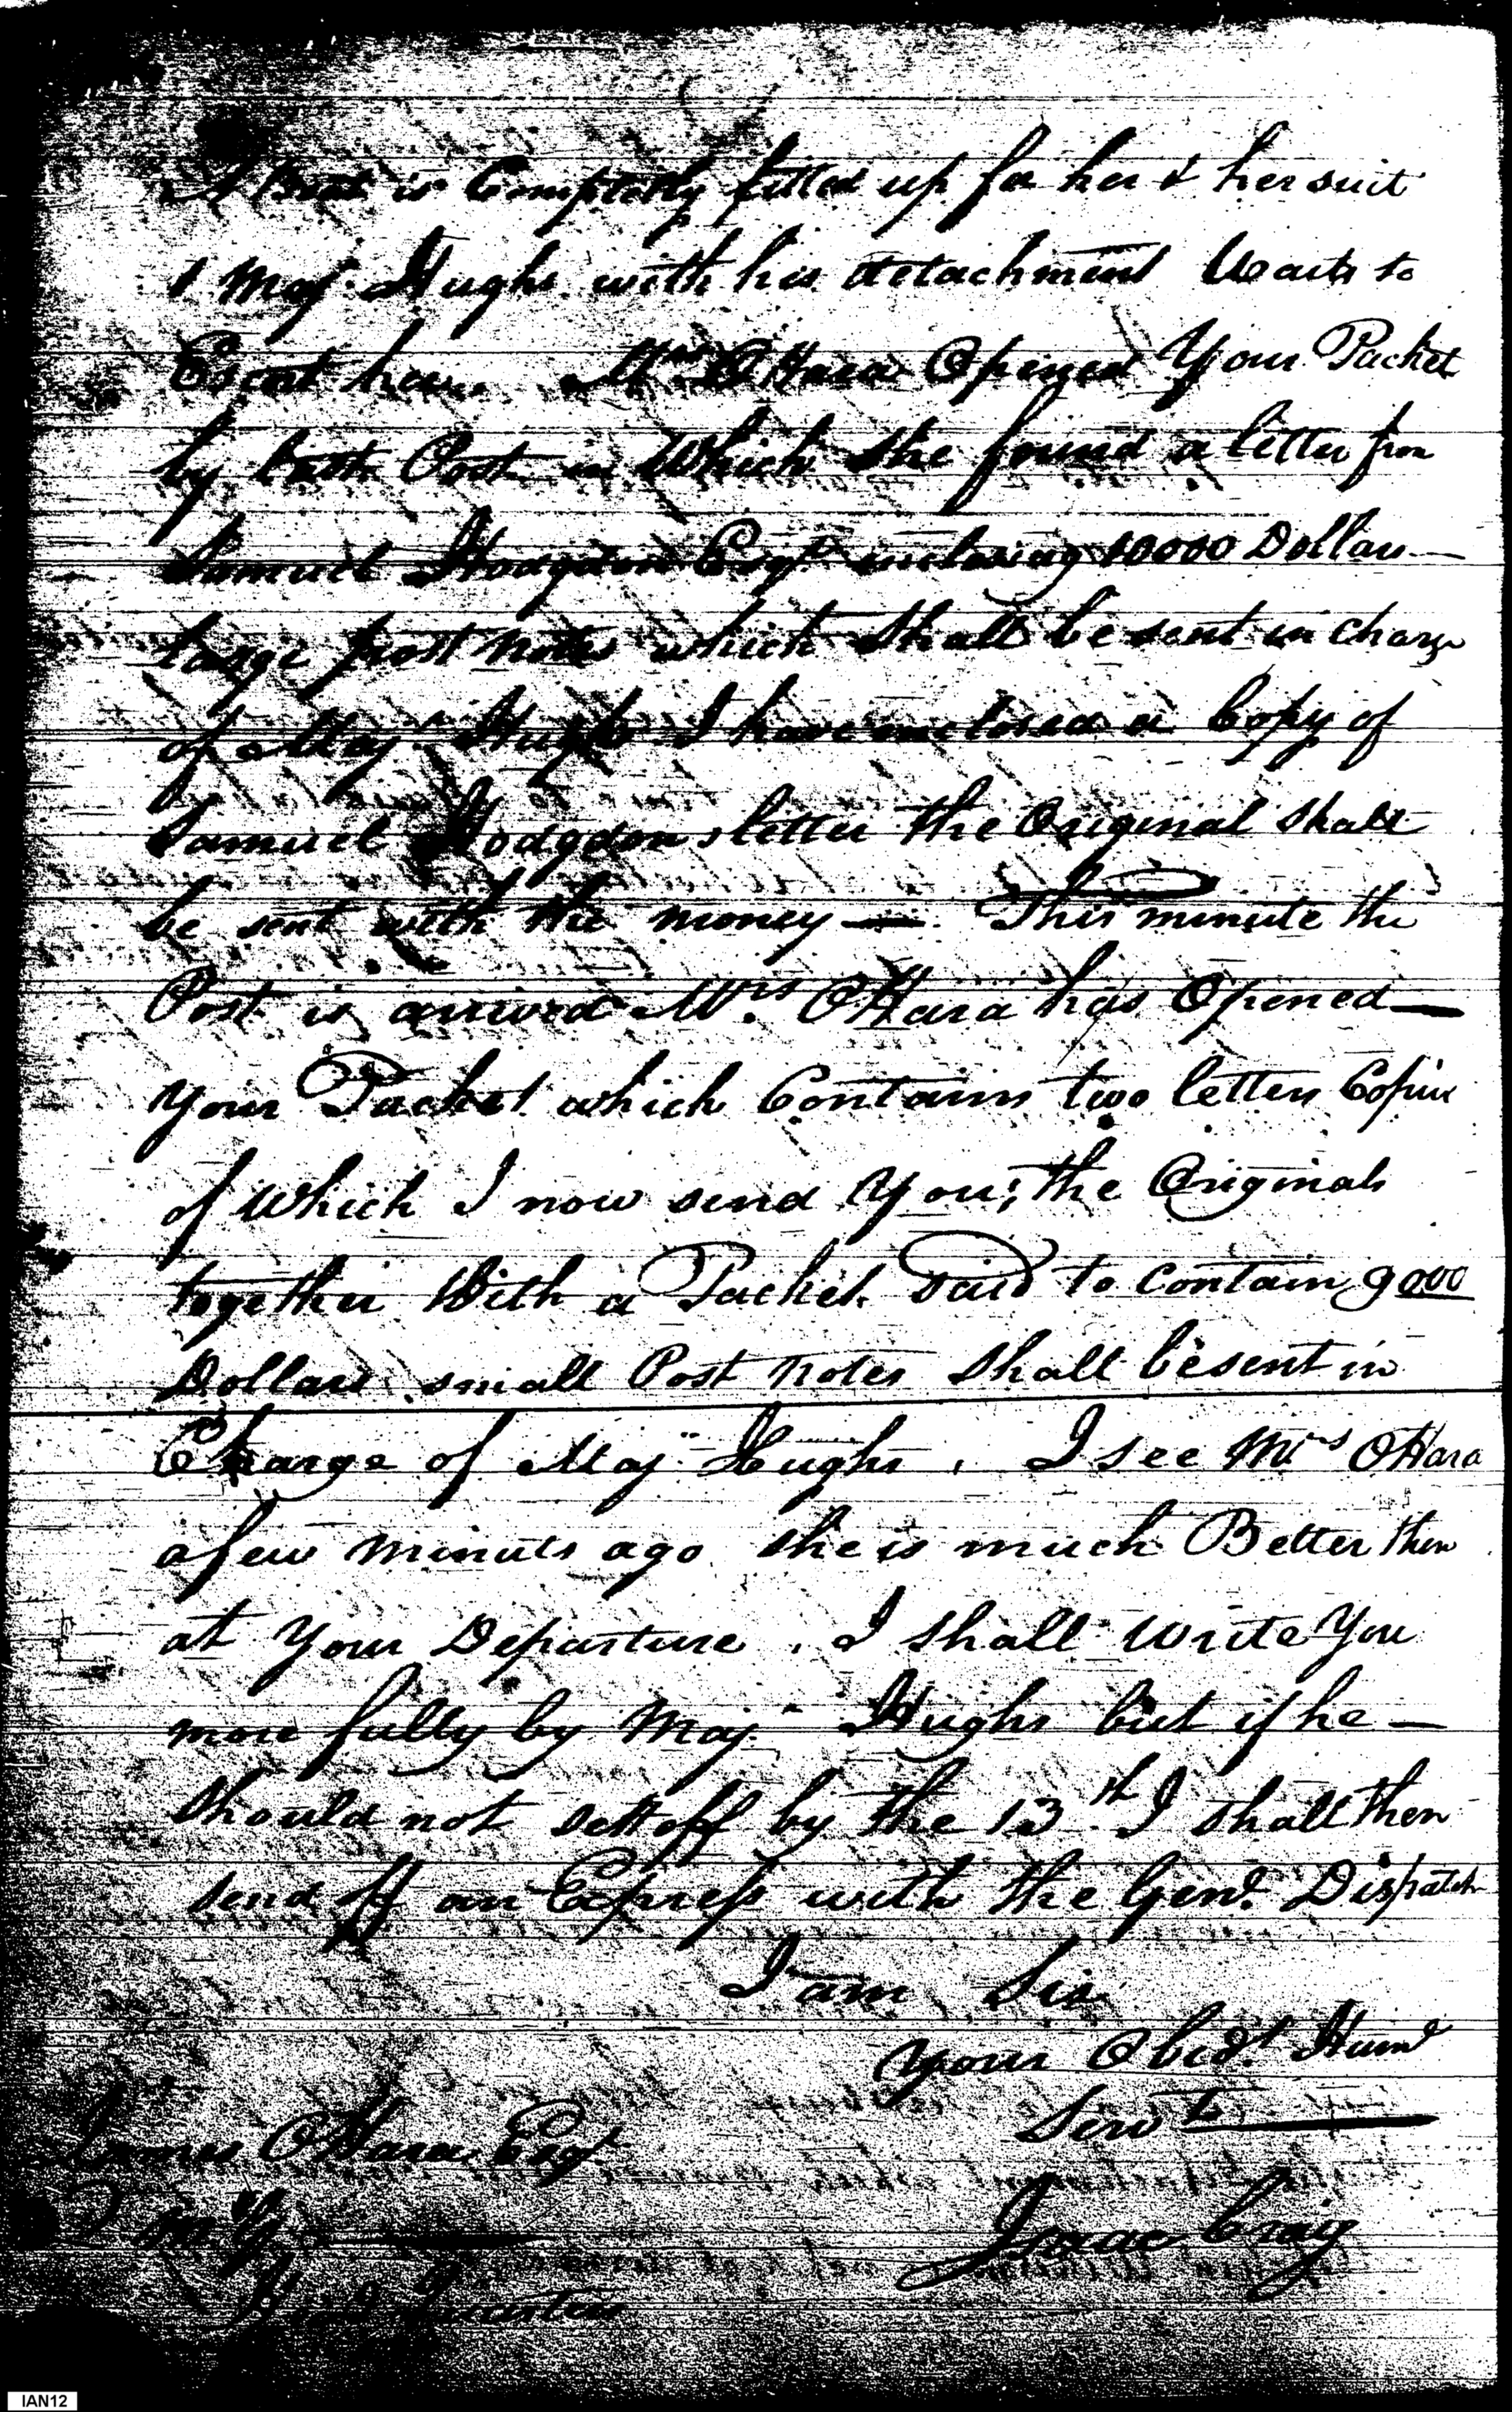 A Boat is Compleatly fitted up for her & her suit
& Maj.r Hughs with his detachment Waits to
Escort her. Mrs. OHara Opened Your Packet
by last Post in Which She found a letter from
Samuel Hodgdon Esqr. inclosing 10000 Dollars —
large post notes which Shall be sent in Charge
of Maj.r Hughs I have inclosed a Copy of
Samuel Hodgdons letter the Original Shall
be sent with the money — . This minute the
Post is arrived Mrs. OHara has Opened —
Your Packet which Contains two letters Copies
of Which I now send You; the Originals
together With a Packet Said to Contain 9000
Dollars small Post notes Shall be sent in
Charge of Maj.r Hughs , I see Mrs OHara
a few minuts ago she is much Better then
at Your Departure . I shall write You
more fully by Maj.r Hughs but if he —
Should not sett off by the 13th. I shall then
send off an Express with the Genl. Dispatch
I am Sir
Your Obedt. Humb
Servt. —
James OHara Esqr
Q M G —
Isaac Craig
Head Quarters
IAN12